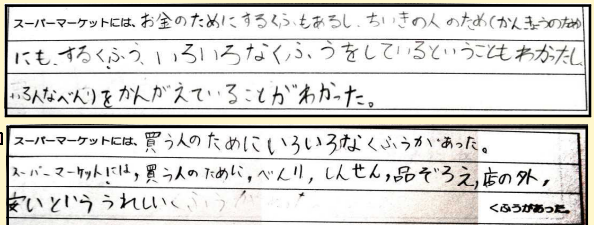 スーパーマーケットには、お金のためにするくふうもあるし、ちいきの人のため(かんきょうのため
にも、するくふう、いろいろなくふうをしているということもわかったし
いろんなべんりをかんがえていることがわかった。
スーパーマーケットには、買う人のためにいろいろなくふうがあった。
スーパーマーケットには、買う人のために、べんり、しんせん、品ぞろえ、店の外、
安いというううれしいくふうが
くふうがあった。